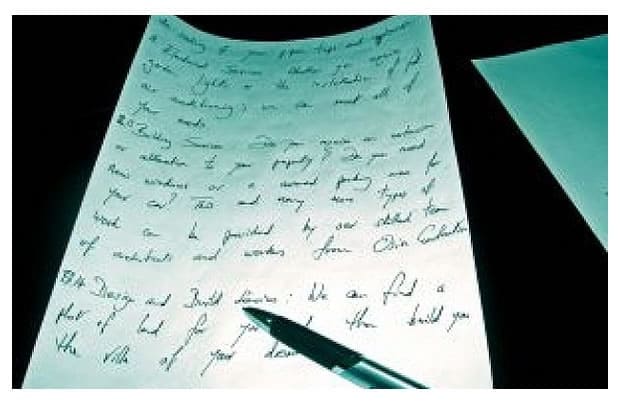 of your
Services
garden lights or the installation of full
air conditioning; we can meet all of
your needs
Building Services Do you require an extension
or alteration to your property? Do you need
new windows or a covered parking area for
your car? This and many more types of
work can be provided by our skilled team
of architects and workers from
Design and Build Service: We can find a
plot of land for you then build you
the villa of your